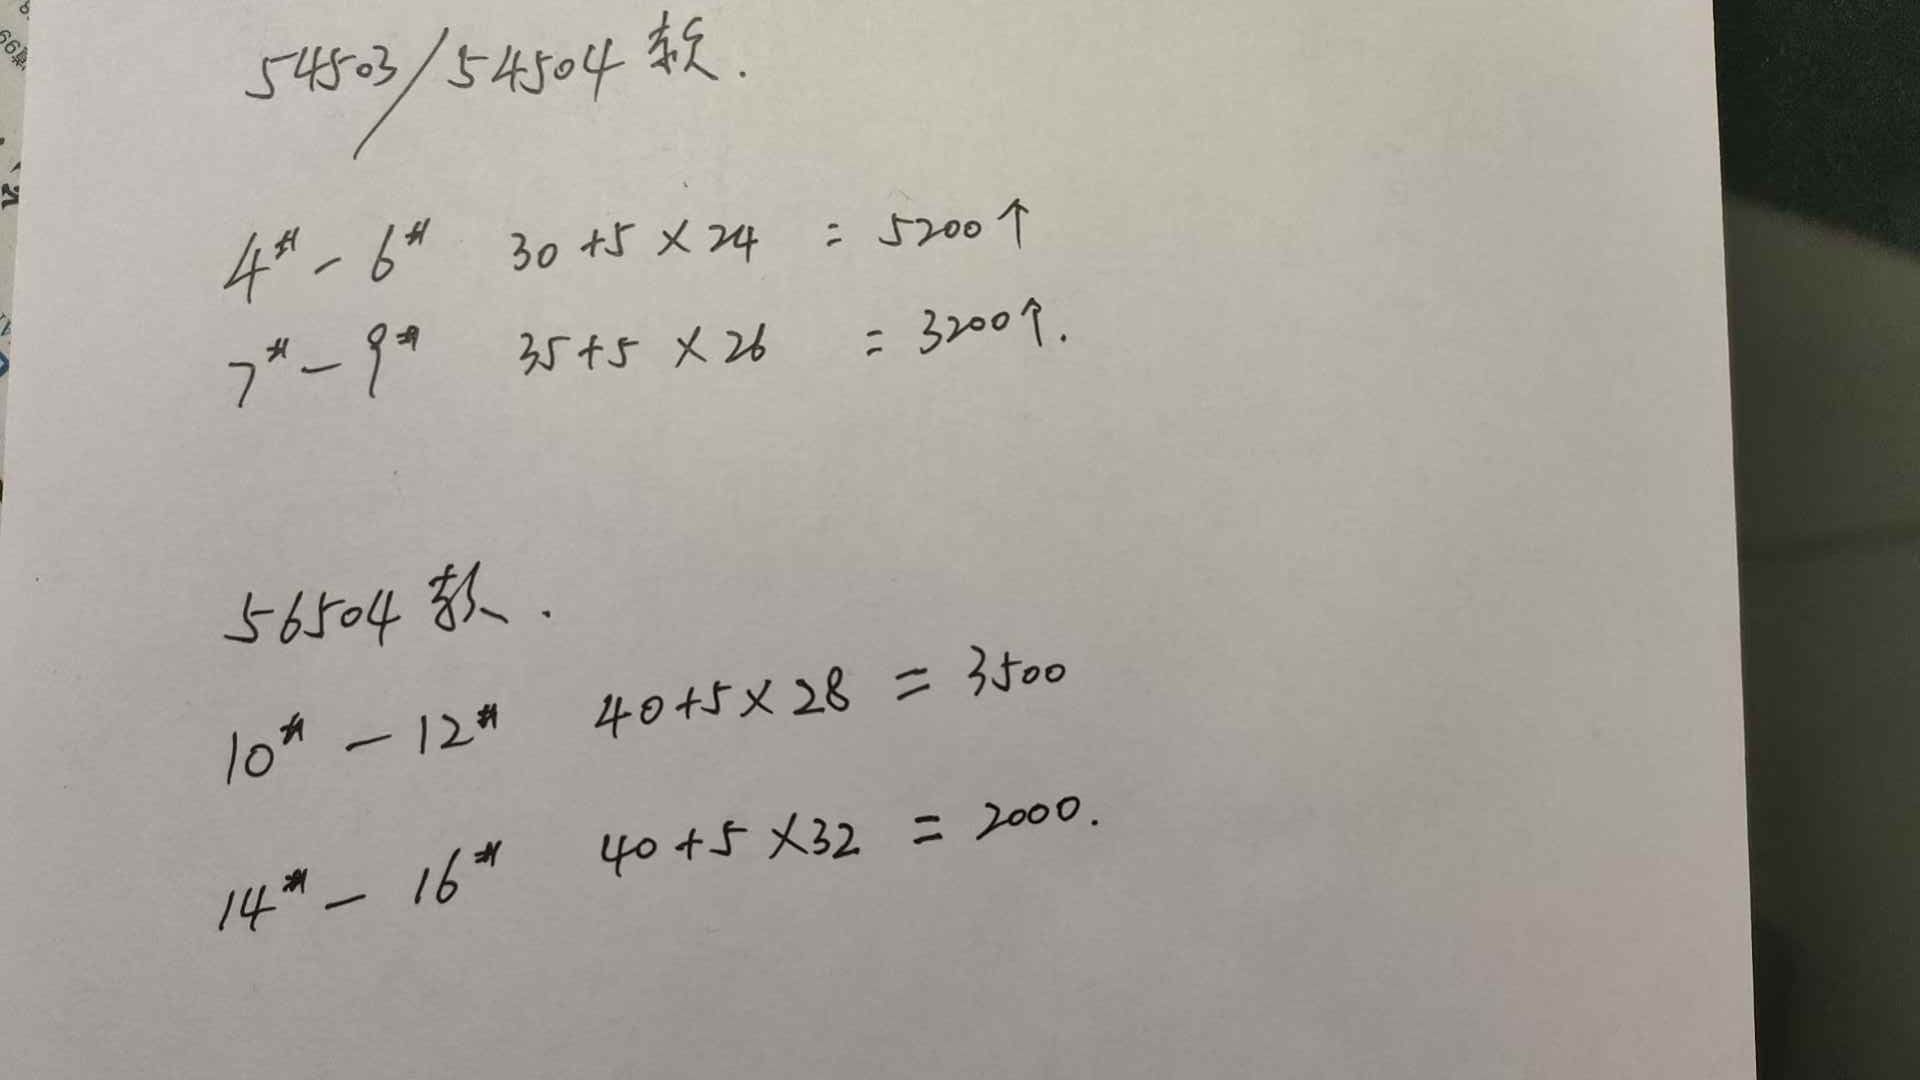 54503/54504 款.
4# - 6# 30+5×24 = 5200个
7# - 9# 35+5×26 = 3200个.
56504 款.
10# - 12# 40+5×28 = 3500
14# - 16# 40+5×32 = 2000.